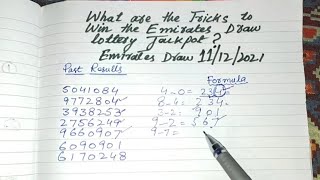 What are the Tricks to
Win the Emirates Draw
lottery Jackpot?
Emirates Draw 11/12/2021
Past Results
Formula
5041084 4-0= 234
9772804 8-4= 234
3938253 2-2= 901
2756249 9-2= 567
9660907 9-7=
6090901
6170248